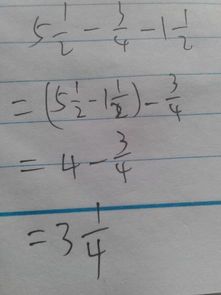 5 1/2 - 3/4 - 1 1/2
= (5 1/2 - 1 1/2) - 3/4
= 4 - 3/4
= 3 1/4